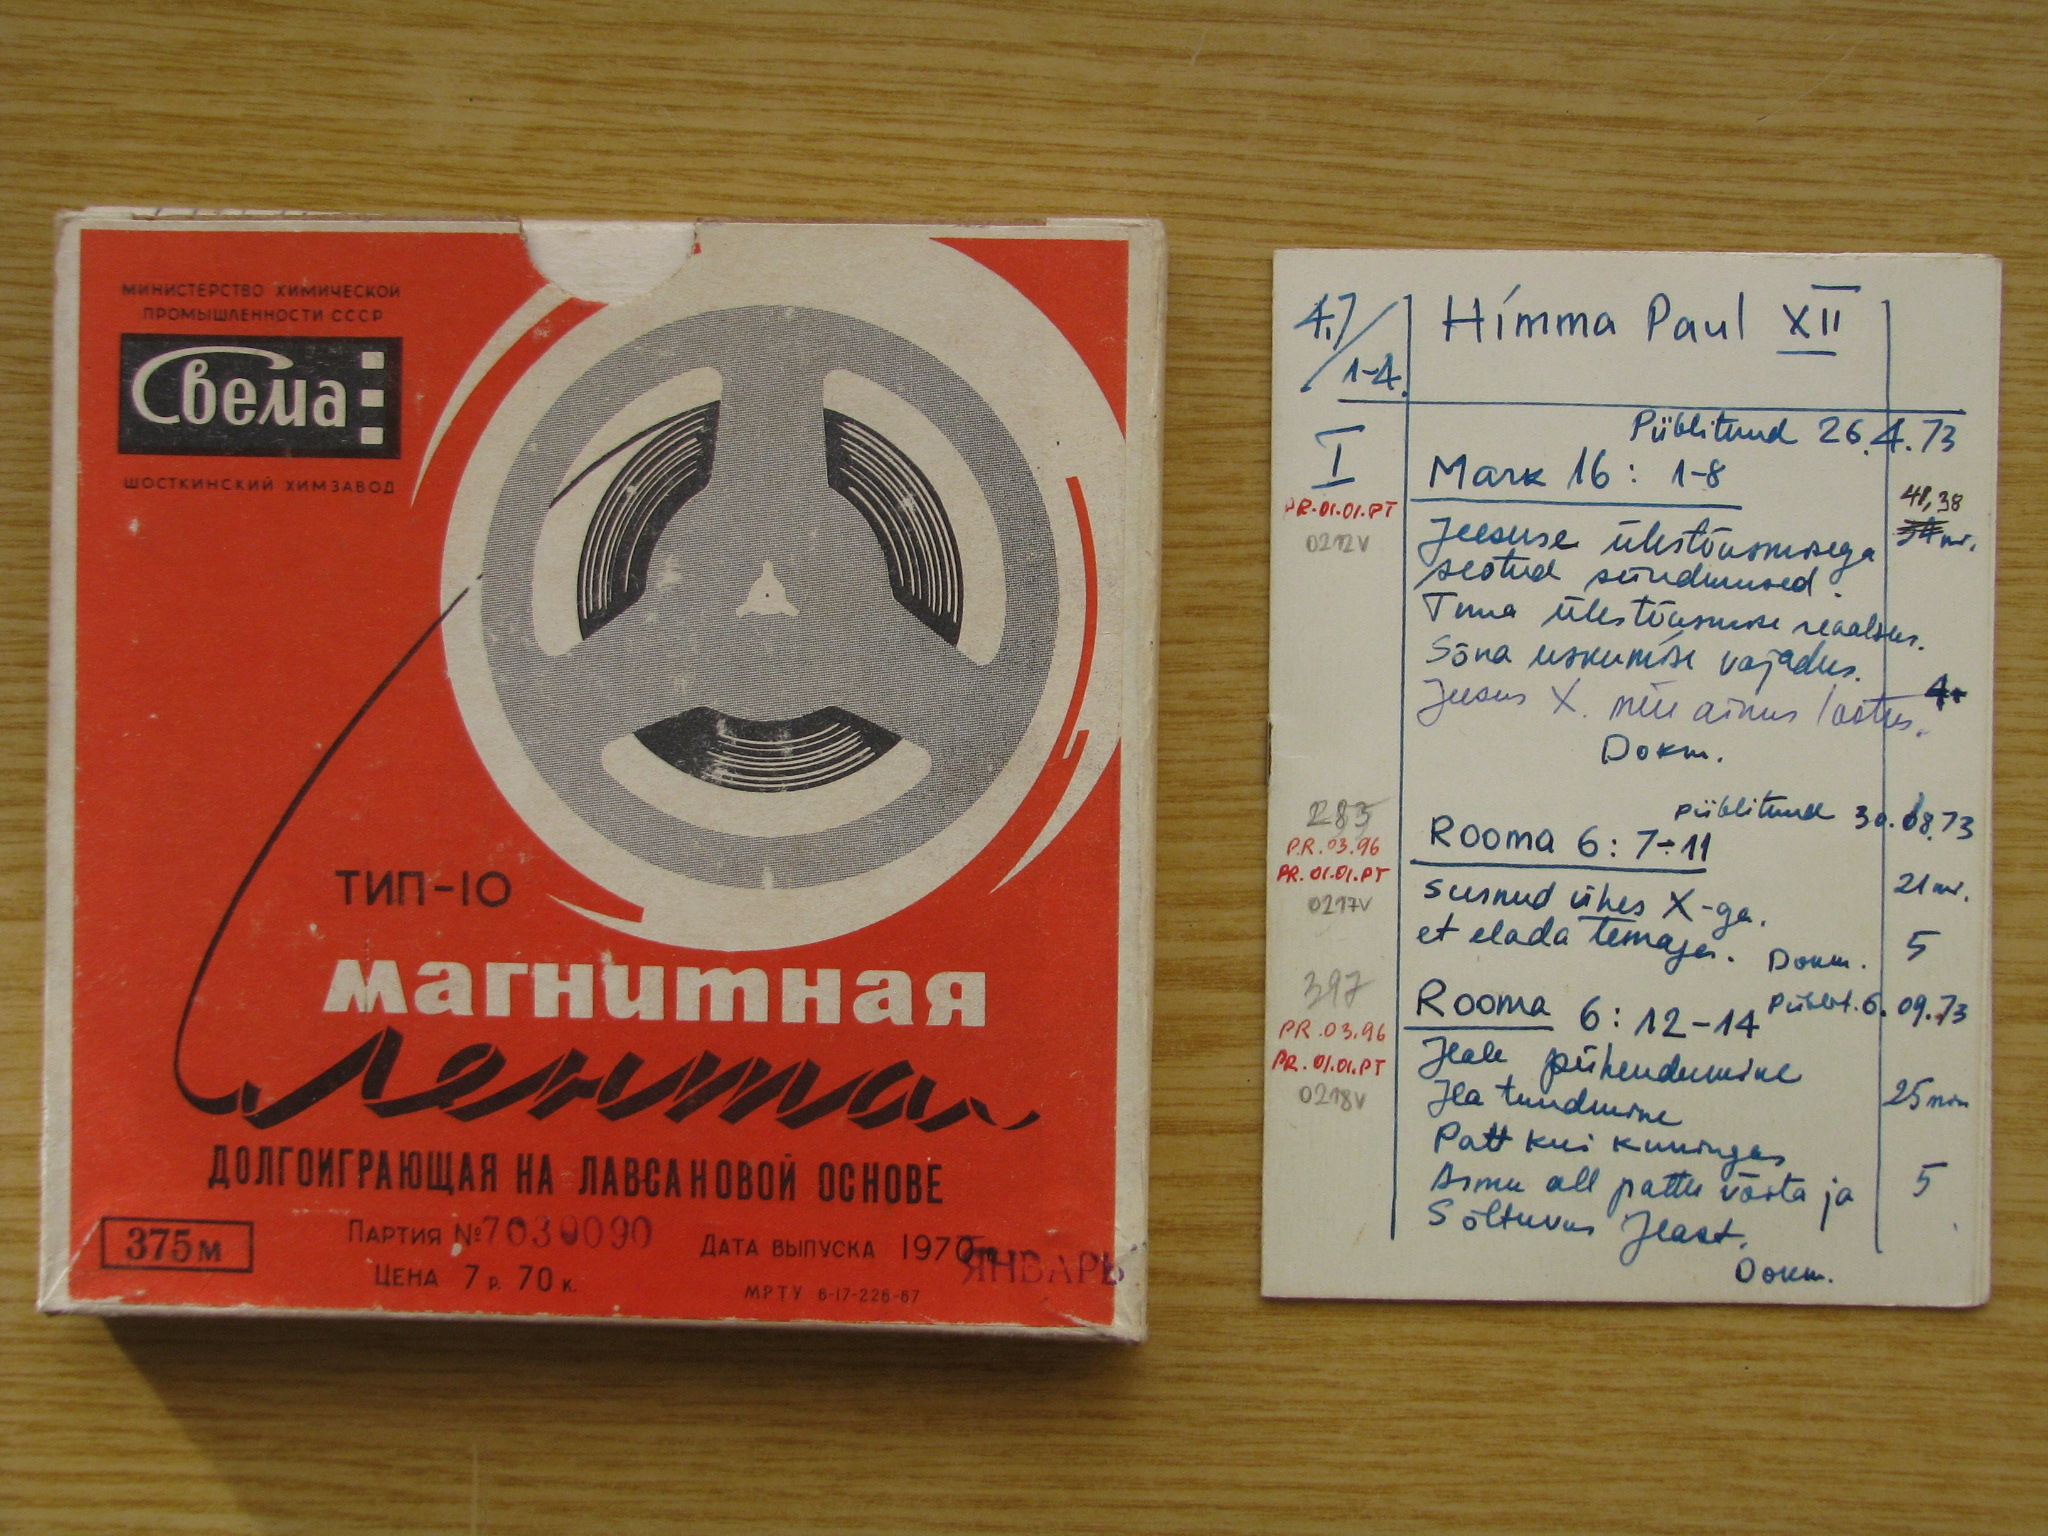 МИНИСТЕРСТВО ХИМИЧЕСКОЙ
ПРОМЫШЛЕННОСТИ СССР
Свема
ШОСТКИНСКИЙ ХИМЗАВОД
ТИП-10
магнитная
Лента
ДОЛГОИГРАЮЩАЯ НА ЛАВСАНОВОЙ ОСНОВЕ
375м
ПАРТИЯ № 7030090
ДАТА ВЫПУСКА 1970 ЯНВАРЬ
ЦЕНА 7 р. 70 к.
МРТУ 6-17-226-67
4.7/1-4.
Himma Paul XII
Piiblitund 26.4.73
I
Mark 16: 1-8
PR.01.01.PT
0212V
41,38
Jeesuse ülestõusmisega
seotud sündmused.
Tema ülestõusmise reaalsus.
Sõna uskumise vajadus.
Jeesus X. meie ainus lootus.
4+
Dokm.
283
piiblitund 30.08.73
Rooma 6: 7-11
PR.03.96
PR.01.01.PT
0217V
21 m.
surnud ühes X-ga.
et elada temaga.
Dokm.
5
397
Rooma 6: 12-14
Piiblit. 6.09.73
PR.03.96
PR.01.01.PT
0218V
Jlale pühendumine
Jla tundmine
25 min
Patt kui kuningas
Armu all pattu võita ja
5
Sõltuvus Jlast.
Dokm.